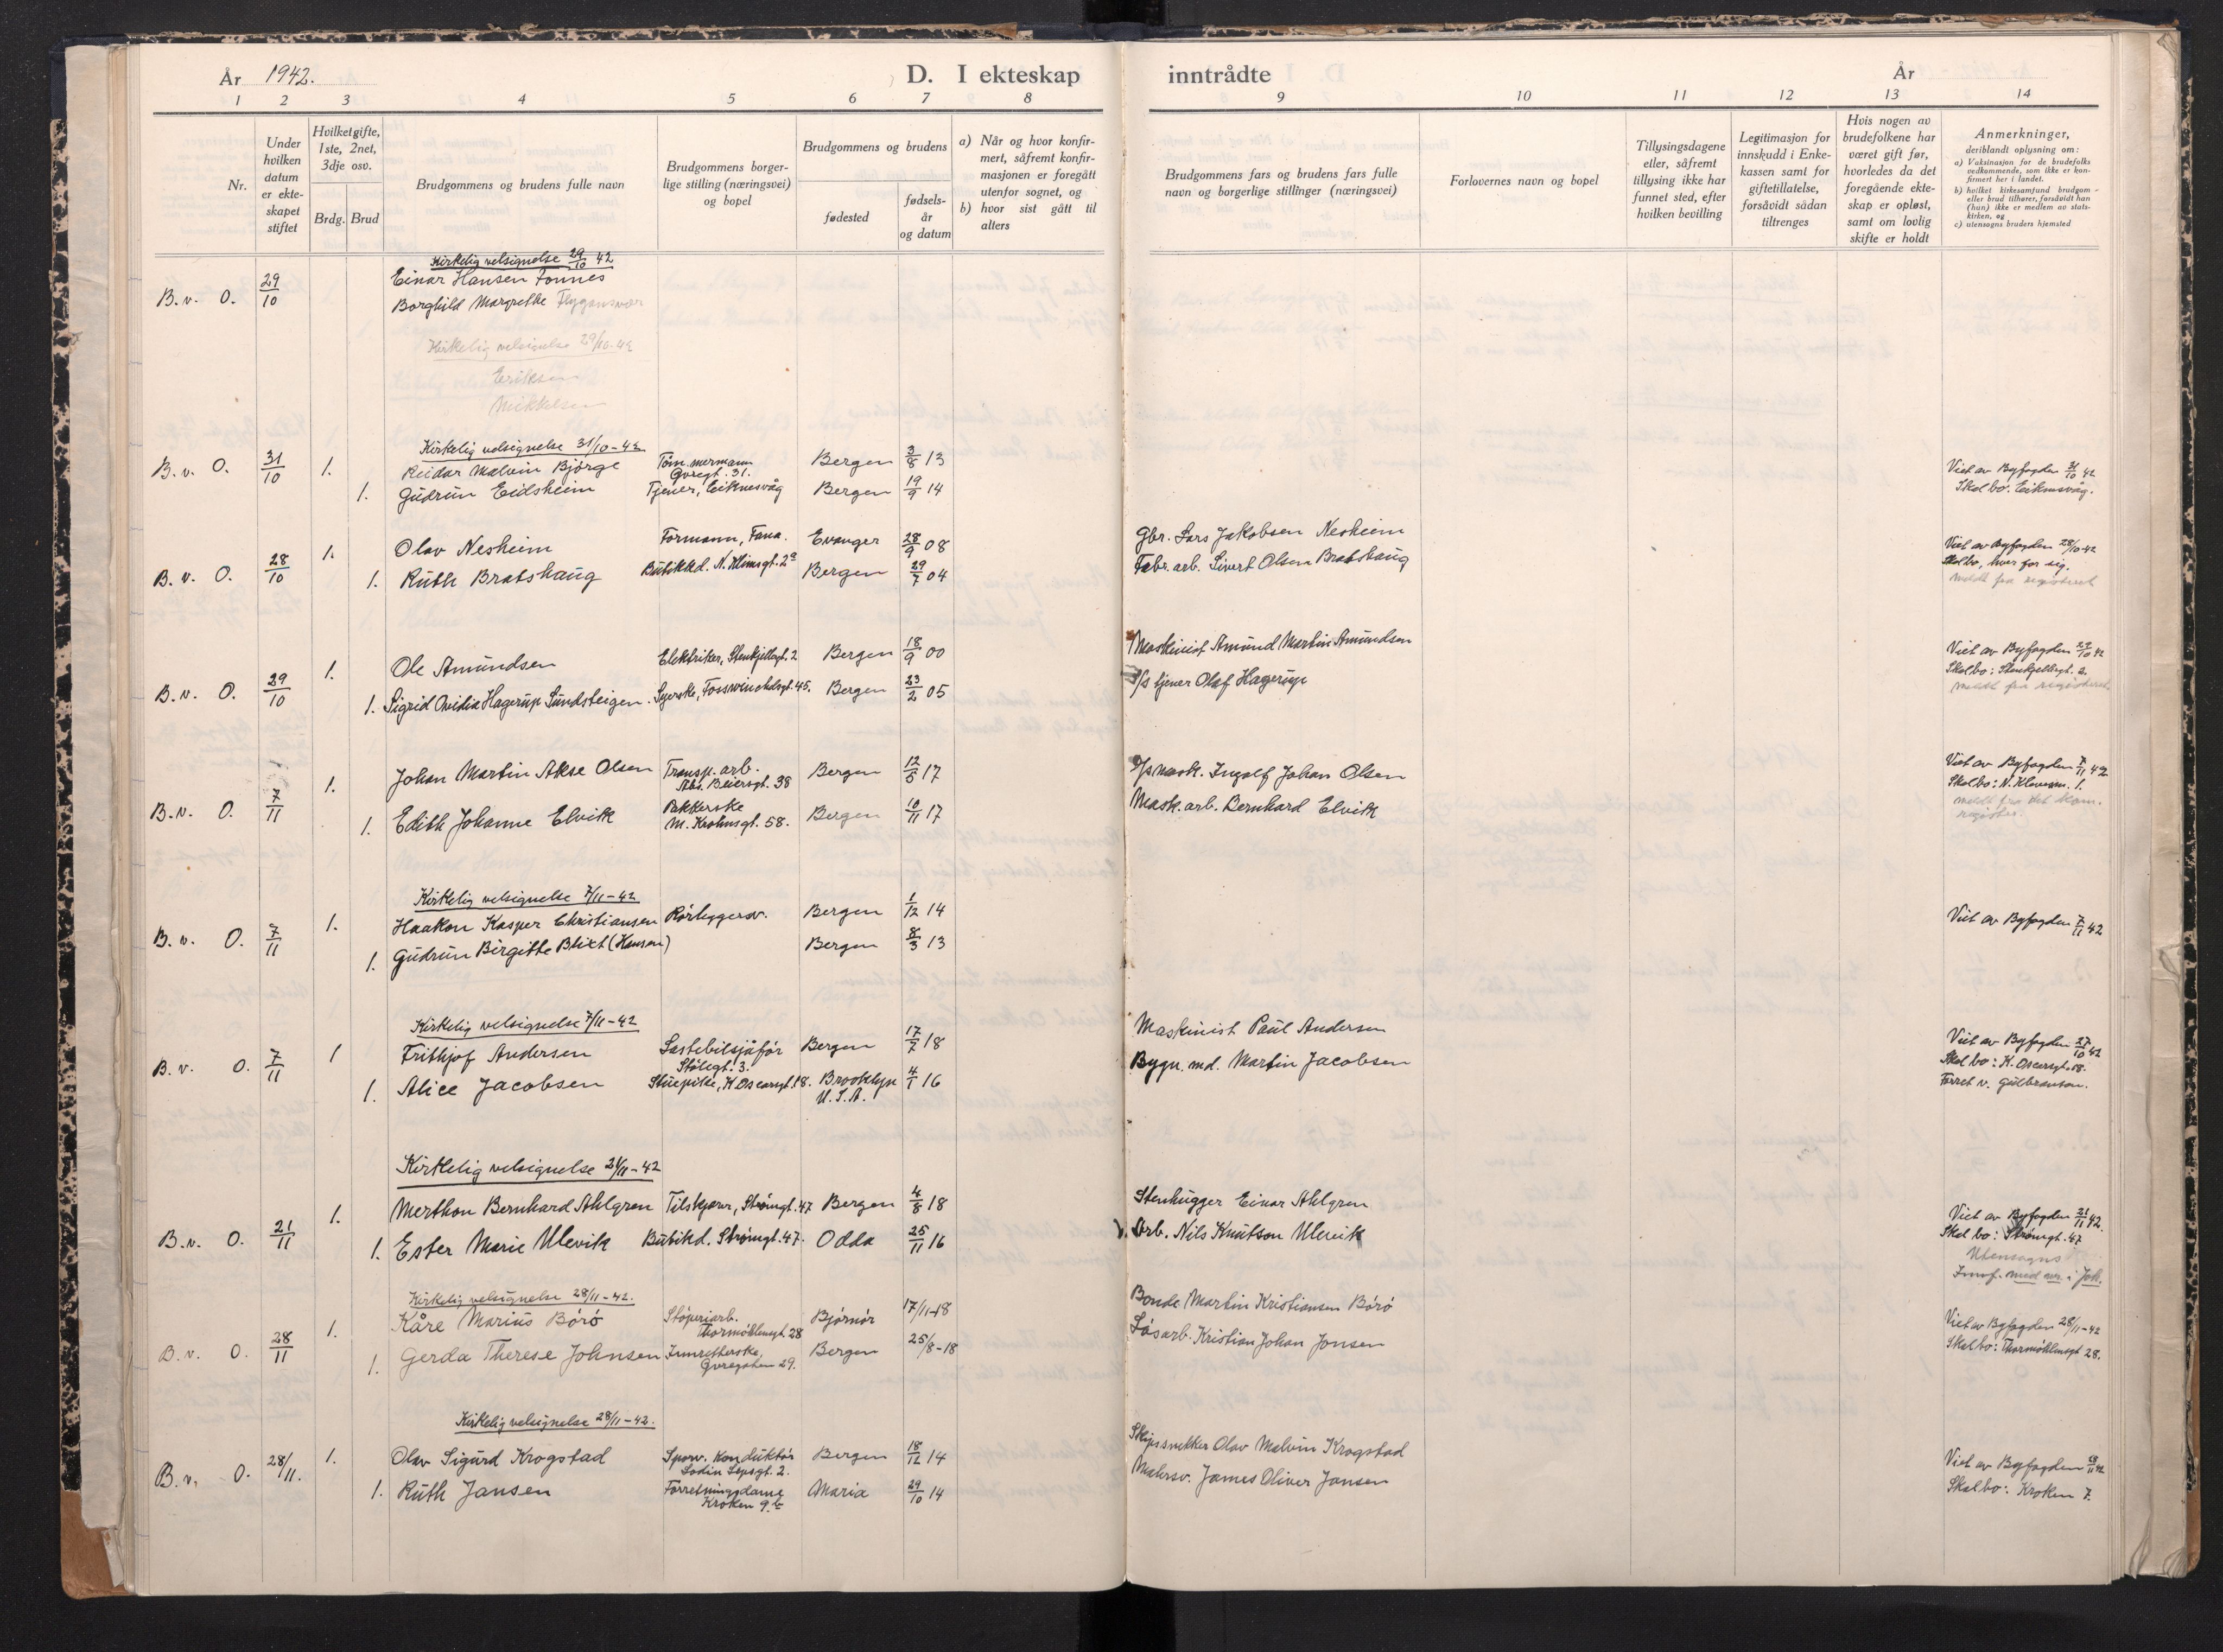 År 1942.
D. I ekteskap
inntrådte
År
1 2 3 4 5 6 7 8
9 10 11 12 13 14
Nr.
Under
hvilken
datum
er ekte-
skapet
stiftet
Hvilket gifte,
1ste, 2net,
3dje osv.
Brdg. Brud
Brudgommens og brudens fulle navn
Brudgommens borger-
lige stilling (næringsvei)
og bopel
Brudgommens og brudens
fødested
fødsels-
år
og datum
a) Når og hvor konfir-
mert, såfremt konfir-
masjonen er foregått
utenfor sognet, og
b) hvor sist gått til
alters
Brudgommens fars og brudens fars fulle
navn og borgerlige stillinger (næringsvei)
Forlovernes navn og bopel
Tillysingsdagene
eller, såfremt
tillysing ikke har
funnet sted, efter
hvilken bevilling
Legitimasjon for
innskudd i Enke-
kassen samt for
giftetillatelse,
forsåvidt sådan
tiltrenges
Hvis nogen av
brudefolkene har
været gift før,
hvorledes da det
foregående ekte-
skap er opløst,
samt om lovlig
skifte er holdt
Anmerkninger,
deriblandt oplysning om:
a) Vaksinasjon for de brudefolks
vedkommende, som ikke er kon-
firmert her i landet.
b) hvilket kirkesamfund brudgom -
eller brud tilhører, forsåvidt han
(hun) ikke er medlem av stats-
kirken, og
c) utensogns bruders hjemsted
Kirkelig velsignelse 29/10 42
B.v. O. 29/10 Einar Hansen Tonnes
Borghild Margrethe Flygansvær
Kirkelig velsignelse 29/10-42
Eriksen
Mikkelsen
Kirkelig velsignelse 31/10-42
B.v. O. 31/10 1. Reidar Malvin Bjørge Tømmermann Øvregt. 31. Bergen 3/8 13 Viet av Byfogden 31/10 42
1. Gudrun Eidsheim Tjener, Eiknesvåg Bergen 19/9 14 Skal bo. Eiknesvåg.
B.v. O. 28/10 1. Olav Nesheim Formann, Fana. Evanger 28/9 08 Gbr. Lars Jakobsen Nesheim Viet av Byfogden 28/10-42
1. Ruth Bratshaug Butikkd. N. Klimsgt. 2a Bergen 29/7 04 Fabr. arb. Sivert Olsen Bratshaug Skal bo, hver for sig.
meldt fra registeret
B.v. O. 29/10 1. Ole Amundsen Elektriker, Stenkjellergt. 2 Bergen 18/9 00 Maskinist Amund Martin Amundsen Viet av Byfogden 29/10 42
1. Sigrid Ovidia Hagerup Sundsteigen. Syerske, Fosswinckelsgt. 45. Bergen 23/2 05 S/s tjener Olaf Hagerup Skal bo: Stenkjellergt. 2.
meldt fra registeret
B.v. O. 7/11 1. Johan Martin Akse Olsen Transp. arb. Abs. Beiersgt. 38 Bergen 12/5 17 D/s mask. Ingolf Johan Olsen Viet av Byfogden 7/11 42
1. Edith Johanne Elvik Pakkerske M. Krohnsgt. 58. Bergen 10/11 17 Mask. arb. Bernhard Elvik Skal bo: N. Kleivesm. 1.
meldt fra det kom.
register.
Kirkelig velsignelse 7/11-42
B.v. O. 7/11 1. Haakon Kasper Christiansen Rørleggersv. Bergen 1/12 14 Viet av Byfogden 7/11 42
1. Gudrun Birgitte Blixt (Hansen) Bergen 8/3 13
Kirkelig velsignelse 7/11-42
B.v. O. 7/11 1 Frithjof Andersen Lastebilsjåfør Stølegt. 3. Bergen 17/7 18 Maskinist Paul Andersen Viet av Byfogden 27/10 42
1. Alice Jacobsen Stuepike, K. Oscarsgt. 18. Brooklyn U.S.A. 4/1 16 Bygn. md. Martin Jacobsen Skal bo: K. Oscarsgt. 18.
Forret v. Gulbranson.
Kirkelig velsignelse 21/11-42
B.v. O. 21/11 1. Merthon Bernhard Ahlgren Tilskjærer, Strømgt. 47 Bergen 4/8 18 Stenhugger Einar Ahlgren Viet av Byfogden 21/11 42.
1. Ester Marie Ulevik Butikd. Strømgt. 47. Odda 25/11 16 Arb. Nils Knutson Ulevik Skal bo: Strømgt. 47
Utensogns
Innf. med nr. i Joh.
Kirkelig velsignelse 28/11-42.
B.v. O. 28/11 1. Kåre Marius Børø Støperiarb. Thormøhlensgt. 28 Bjørnør 17/11-18 Bonde Martin Kristiansen Børø Viet av Byfogden 28/11-42
1. Gerda Therese Johnsen Innretterske, Øvregaten 29. Bergen 25/8-18 Løsarb. Kristian Johan Jonsen Skal bo: Thormøhlensgt 28.
Kirkelig velsignelse 28/11-42.
B.v. O. 28/11. 1. Olav Sigurd Krogstad Sporv. Konduktør Lodin Lepsgt. 2. Bergen 18/12 14 Skipssnekker Olav Malvin Krogstad Viet av Byfogden 28/11 42
1. Ruth Jansen Forretningsdame Kroken 9b Maria 29/10 14 Malersv. James Oliver Jansen Skal bo: Kroken 7.